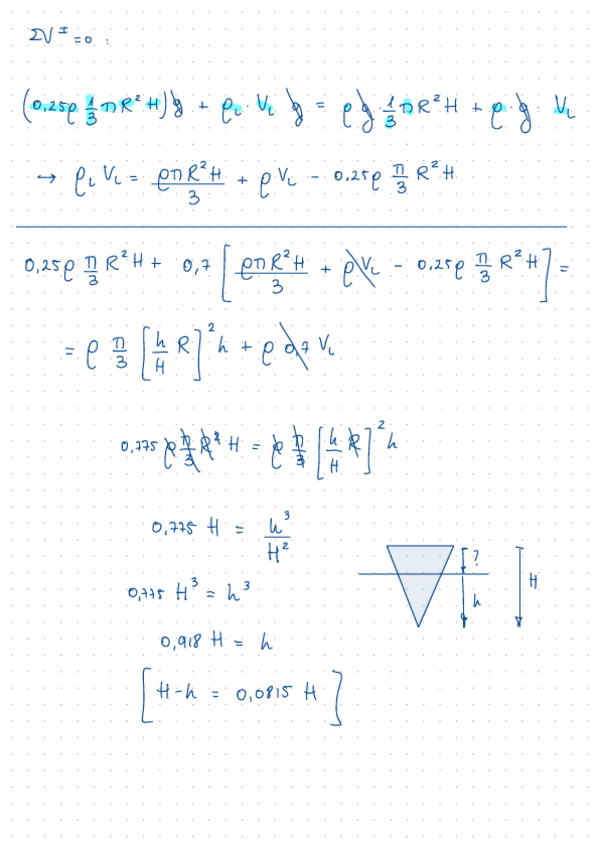 ΣV^I = 0 :
(0,25ρ 1/3 π R² H)g + ρ_L · V_L g = ρ g · 1/3 π R² H + ρ · g · V_L
→ ρ_L V_L = ρπR²H/3 + ρ V_L - 0,25ρ π/3 R² H
0,25ρ π/3 R² H + 0,7 [ρπR²H/3 + ρV_L - 0,25ρ π/3 R² H] =
= ρ π/3 [h/H R]² h + ρ 0,7 V_L
0,775 ρ π/3 R² H = ρ π/3 [h/H R]² h
0,775 H = h³/H²
0,775 H³ = h³
0,918 H = h
[H-h = 0,0815 H]
?
h
H